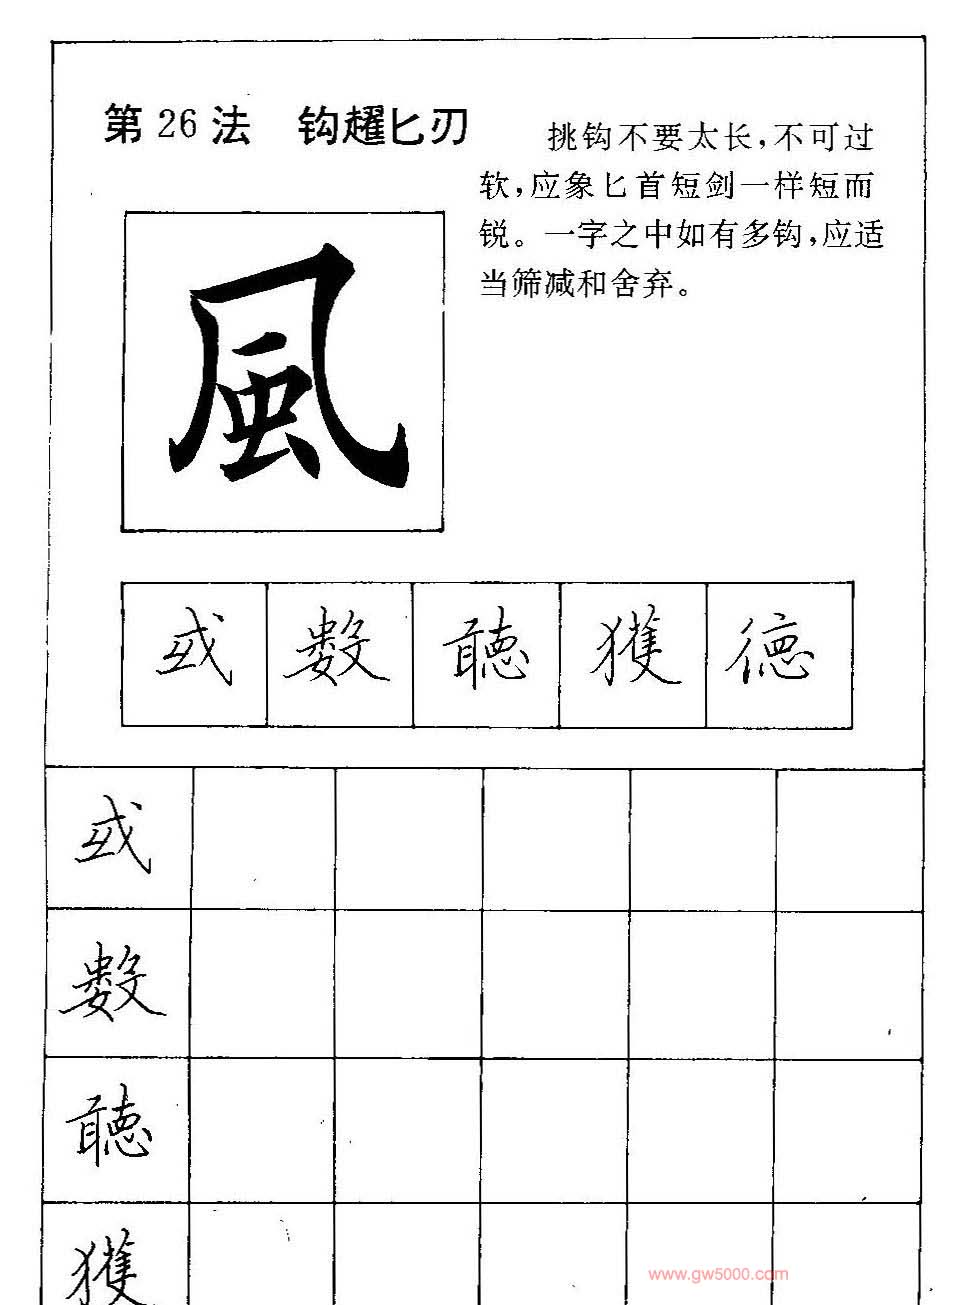 第26法 钩趯匕刃
挑钩不要太长，不可过
软，应象匕首短剑一样短而
锐。一字之中如有多钩，应适
当筛减和舍弃。
風
或 數 聽 獲 德
或
數
聽
獲
www.gw5000.com